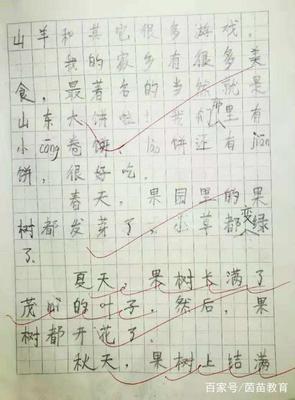 山羊和其它很多游戏.
我的家乡有很多美
食，最著名的当然就是
山东大饼啦！我们那里有
小cōng卷饼，lào饼还有jiān
饼，很好吃.
春天，果园里的果
树都发芽了，小草都变绿
了.
夏天，果树长满了
茂盛的叶子，然后，果
树都开花了.
秋天，果树上结满
百家号/茵苗教育